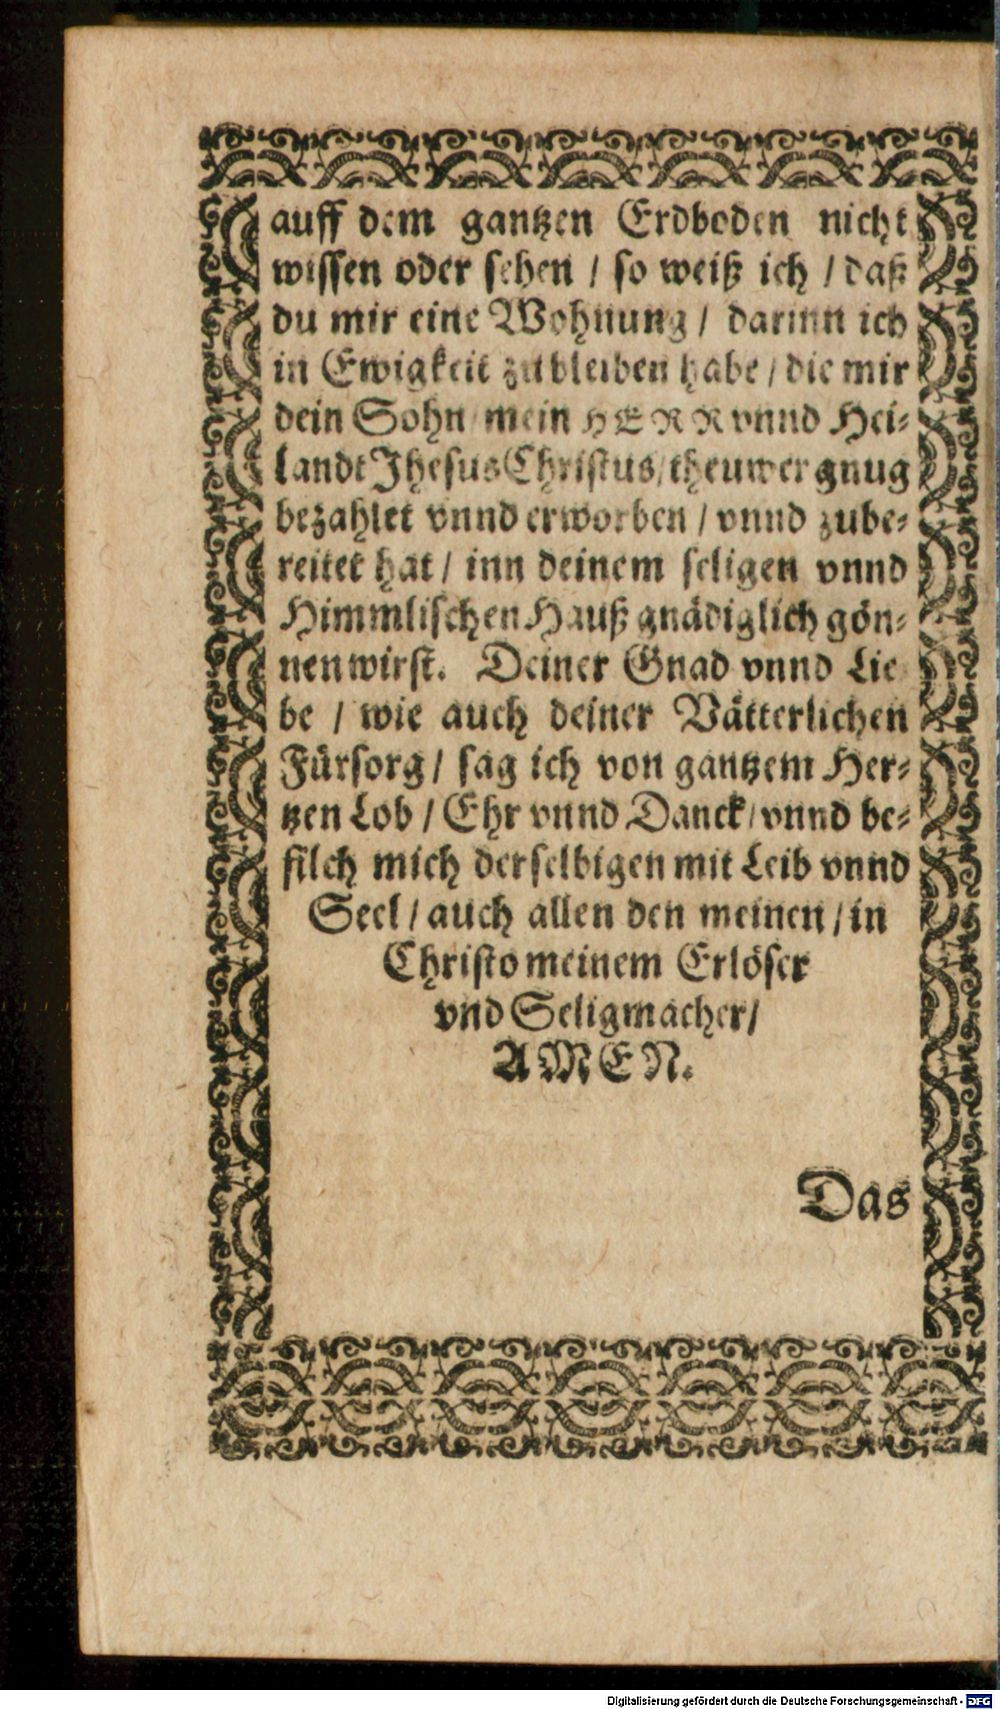 auff dem gantzen Erdboden nicht
wissen oder sehen / so weiß ich / daß
du mir eine Wohnung / darinn ich
in Ewigkeit zu bleiben habe / die mir
dein Sohn mein HERR vnnd Hei-
landt Jhesus Christus / theuwer gnug
bezahlet vnnd erworben / vnnd zube-
reitet hat / inn deinem seligen vnnd
Himmlischen Hauß gnädiglich gön-
nen wirst. Deiner Gnad vnnd Lie
be / wie auch deiner Vätterlichen
Fürsorg / sag ich von gantzem Her-
tzen Lob / Ehr vnnd Danck / vnnd be-
filch mich derselbigen mit Leib vnnd
Seel / auch allen den meinen / in
Christo meinem Erlöser
vnd Seligmacher /
AMEN.
Das
Digitalisierung gefördert durch die Deutsche Forschungsgemeinschaft - DFG